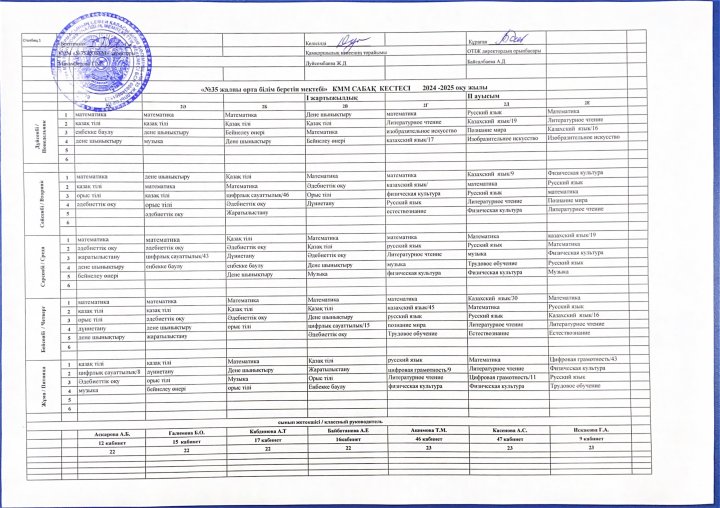 Столбец 1
Бекітемін
Келісілді
Құраған
Қамқоршылық кеңесінің төрайымы
ОТІЖ директордың орынбасары
Дуйсембаева Ж.Д.
Байгалбаева А.Д
«№35 жалпы орта білім беретін мектебі» КММ САБАҚ КЕСТЕСІ 2024 -2025 оқу жылы
І жартыжылдық ІІ ауысым
2Ә 2Б 2В 2Г 2Д 2Е
Дүйсенбі / Понедельник
1 математика математика Математика Дене шынықтыру математика Русский язык Математика
2 қазақ тілі қазақ тілі Қазақ тілі Қазақ тілі Литературное чтение Казахский язык/19 Литературное чтение
3 еңбекке баулу дене шынықтыру Бейнелеу өнері Математика изобразительное искусство Познание мира Казахский язык/16
4 дене шынықтыру музыка Дене шынықтыру Бейнелеу өнері казахский язык/17 Изобразительное искусство Изобразительное искусство
5
6
Сейсенбі / Вторник
1 математика дене шынықтыру Қазақ тілі Математика математика Казахский язык/9 Физическая культура
2 қазақ тілі математика Математика Әдебиеттік оқу казахский язык/ математика Русский язык
3 орыс тілі қазақ тілі цифрлық сауаттылық/46 Орыс тілі физическая культура Русский язык математика
4 әдебиеттік оқу орыс тілі Әдебиеттік оқу Дүниетану Русский язык Литературное чтение Познание мира
5 әдебиеттік оқу Жаратылыстану естествознание Физическая культура Литературное чтение
6
Сәрсенбі / Среда
1 математика математика Қазақ тілі Математика математика Математика казахский язык/19
2 әдебиеттік оқу әдебиеттік оқу Әдебиеттік оқу Қазақ тілі русский язык Русский язык Математика
3 жаратылыстану цифрлық сауаттылық/43 Дүниетану Әдебиеттік оқу Литературное чтение музыка Физическая культура
4 дене шынықтыру еңбекке баулу еңбекке баулу Дене шынықтыру музыка Трудовое обучение Русский язык
5 бейнелеу өнері Дене шынықтыру Музыка физическая культура Физическая культура Музыка
6
Бейсенбі / Четверг
1 математика математика Математика Математика математика Казахский язык/30 Математика
2 қазақ тілі қазақ тілі Қазақ тілі Қазақ тілі казахский язык/45 Математика Русский язык
3 орыс тілі әдебиеттік оқу Әдебиеттік оқу Дене шынықтыру русский язык Русский язык Казахский язык/16
4 дүниетану дене шынықтыру орыс тілі цифрлық сауаттылық/15 познание мира Литературное чтение Литературное чтение
5 дене шынықтыру жаратылыстану Әдебиеттік оқу Трудовое обучение Естествознание Естествознание
6
Жұма / Пятница
1 қазақ тілі қазақ тілі Математика Қазақ тілі русский язык Математика Цифровая грамотность/43
2 цифрлық сауаттылық/8 дүниетану Дене шынықтыру Жаратылыстану цифровая грамотность/9 Литературное чтение Физическая культура
3 Әдебиеттік оқу орыс тілі Музыка Орыс тілі Литературное чтение Цифровая грамотность/11 Русский язык
4 музыка бейнелеу өнері орыс тілі Еңбекке баулу физическая культура Физическая культура Трудовое обучение
5
6
сынып жетекшісі / классный руководитель
Асқарова А.Б. Ғалимнин Б.О. Кабдинова А.Т Байботанова А.Е Акимова Т.М. Касенова А.С. Искакова Г.А.
12 кабинет 15 кабинет 17 кабинет 16кабинет 46 кабинет 47 кабинет 9 кабинет
22 22 22 22 23 23 23